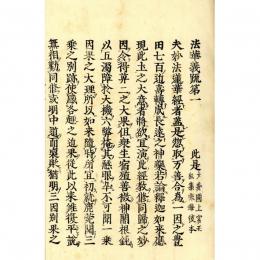 法華義疏第一 此是大委國上宮王
私集非海彼本
夫妙法蓮華經者蓋是惣取万善合爲一因之豊
田七百近壽轉成長遠之神藥若論釋迦如來應
現此土之大意者將欲宜演此經教修同歸之妙
因令得莫二之大果但衆生宿殖善微神闇根鈍
以五濁障於大機六弊掩其慧眼卒不可聞一乗
因果之大理所以如來隨時所宜初就鹿苑開三
乗之別跡使感各趣之近果從此以來雖復平說
無相勸同修或明中道而褒貶猶明三因別果之